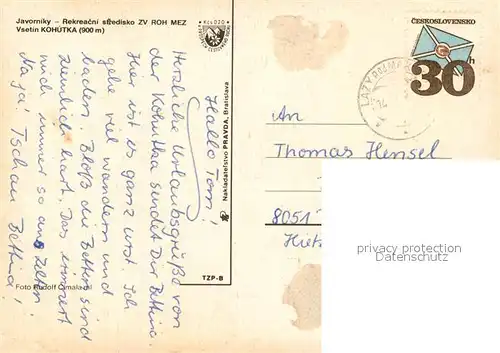 Javorníky – Rekreační středisko ZV ROH MEZ
Vsetín KOHÚTKA (900 m)
Hallo Tom!
Herzliche Urlaubsgrüße von
der Kohutka sendet Dir Bettina.
Hier ist es ganz urst. Ich
gehe viel wandern und
baden. Bloß die Betten sind
ziemlich hart. Das erinnert
mich immer so ans Zelten
Na ja! Tschau Bettina!
Foto Rudolf
Nakladateľstvo PRAVDA, Bratislava
TZP-B
ČESKOSLOVENSKO
30h
LAZY POD MA
An
Thomas Hensel
8051
privacy protection
www.delcampe.net